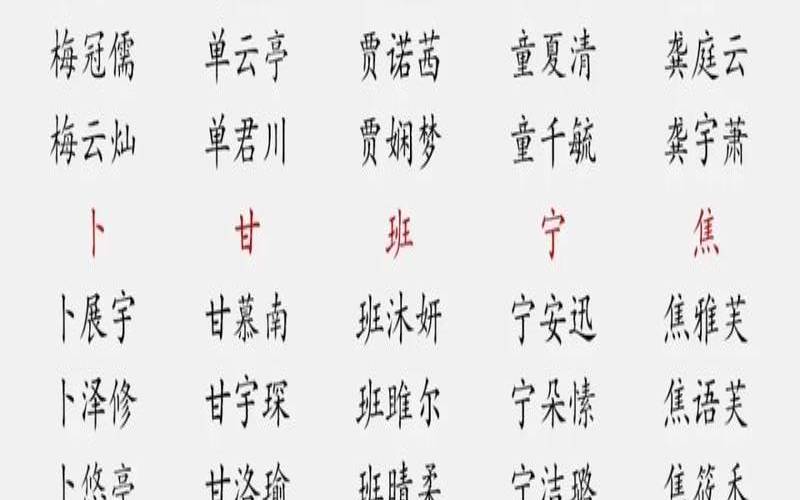 梅冠儒 单云亭 贾诺茜 童夏清 龚庭云
梅云灿 单君川 贾娴梦 童千毓 龚宇萧
卜 甘 班 宁 焦
卜展宇 甘慕南 班沐妍 宁安迅 焦雅芙
卜泽修 甘宇琛 班雎尔 宁朵愫 焦语芙
卜悠亭 甘洛瑜 班晴柔 宁洁璐 焦筱禾